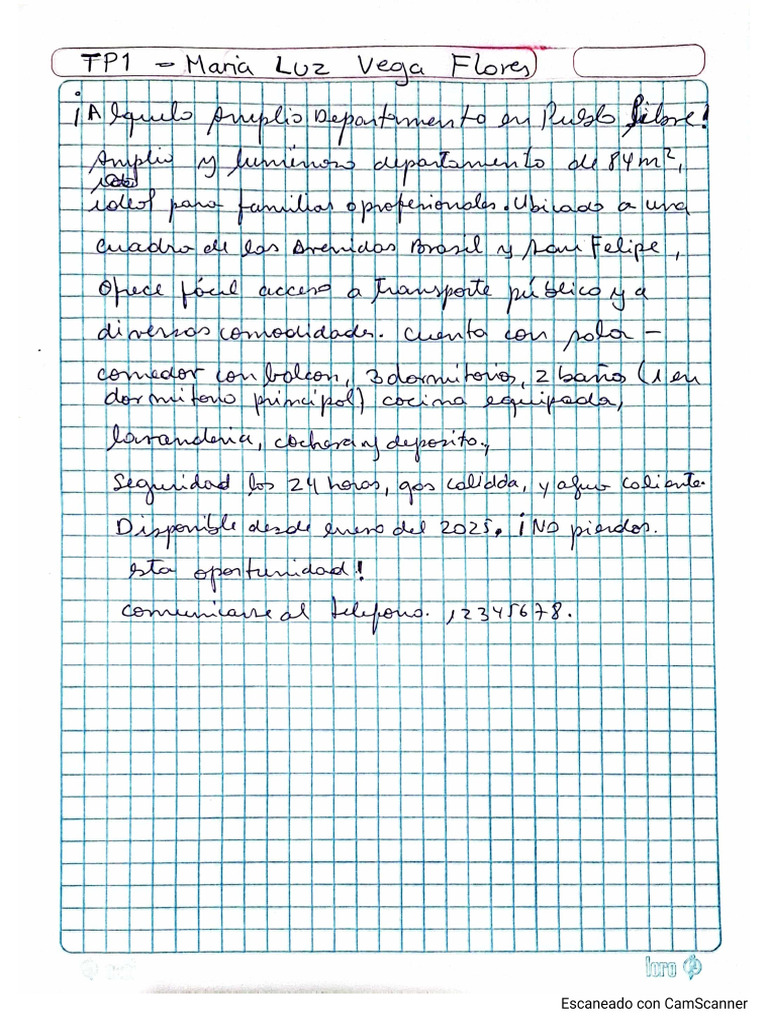 TP1 - Maria Luz Vega Flores
¡Alquilo Amplio Departamento en Pueblo Libre!
Amplio y luminoso departamento de 84 m²,
ideal para familias o profesionales. Ubicado a una
cuadra de las Avenidas Brasil y San Felipe,
ofrece fácil acceso a transporte público y a
diversas comodidades. cuenta con sala-
comedor con balcon, 3 dormitorios, 2 baños (1 en
dormitorio principal) cocina equipada,
lavanderia, cochera y deposito.,
Seguridad las 24 horas, gas calidda, y agua caliente.
Disponible desde enero del 2025. ¡No pierdas.
esta oportunidad!
comunicarse al telefono. 12345678.
loro
Escaneado con CamScanner